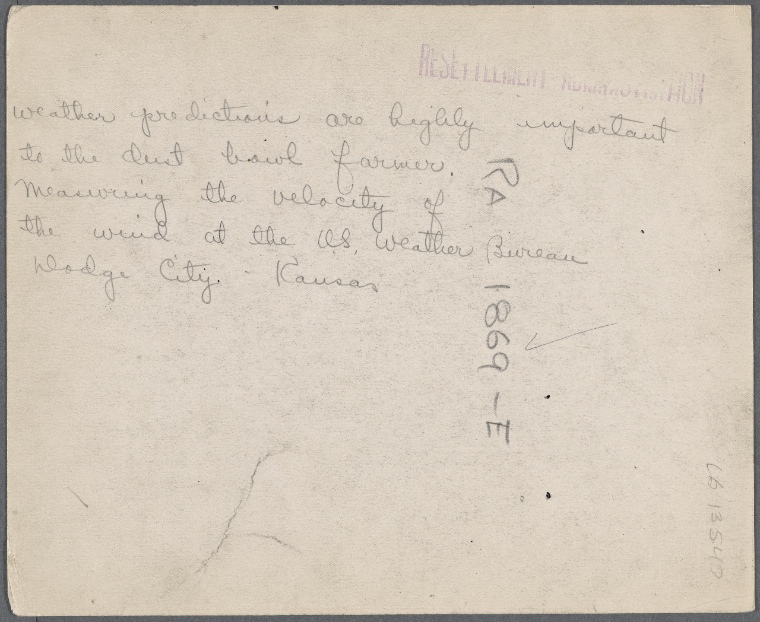 RESETTLEMENT ADMINISTRATION
Weather predictions are highly important
to the dust bowl farmer.
Measuring the velocity of
the wind at the U.S. Weather Bureau
Dodge City. Kansas
RA 1869-E